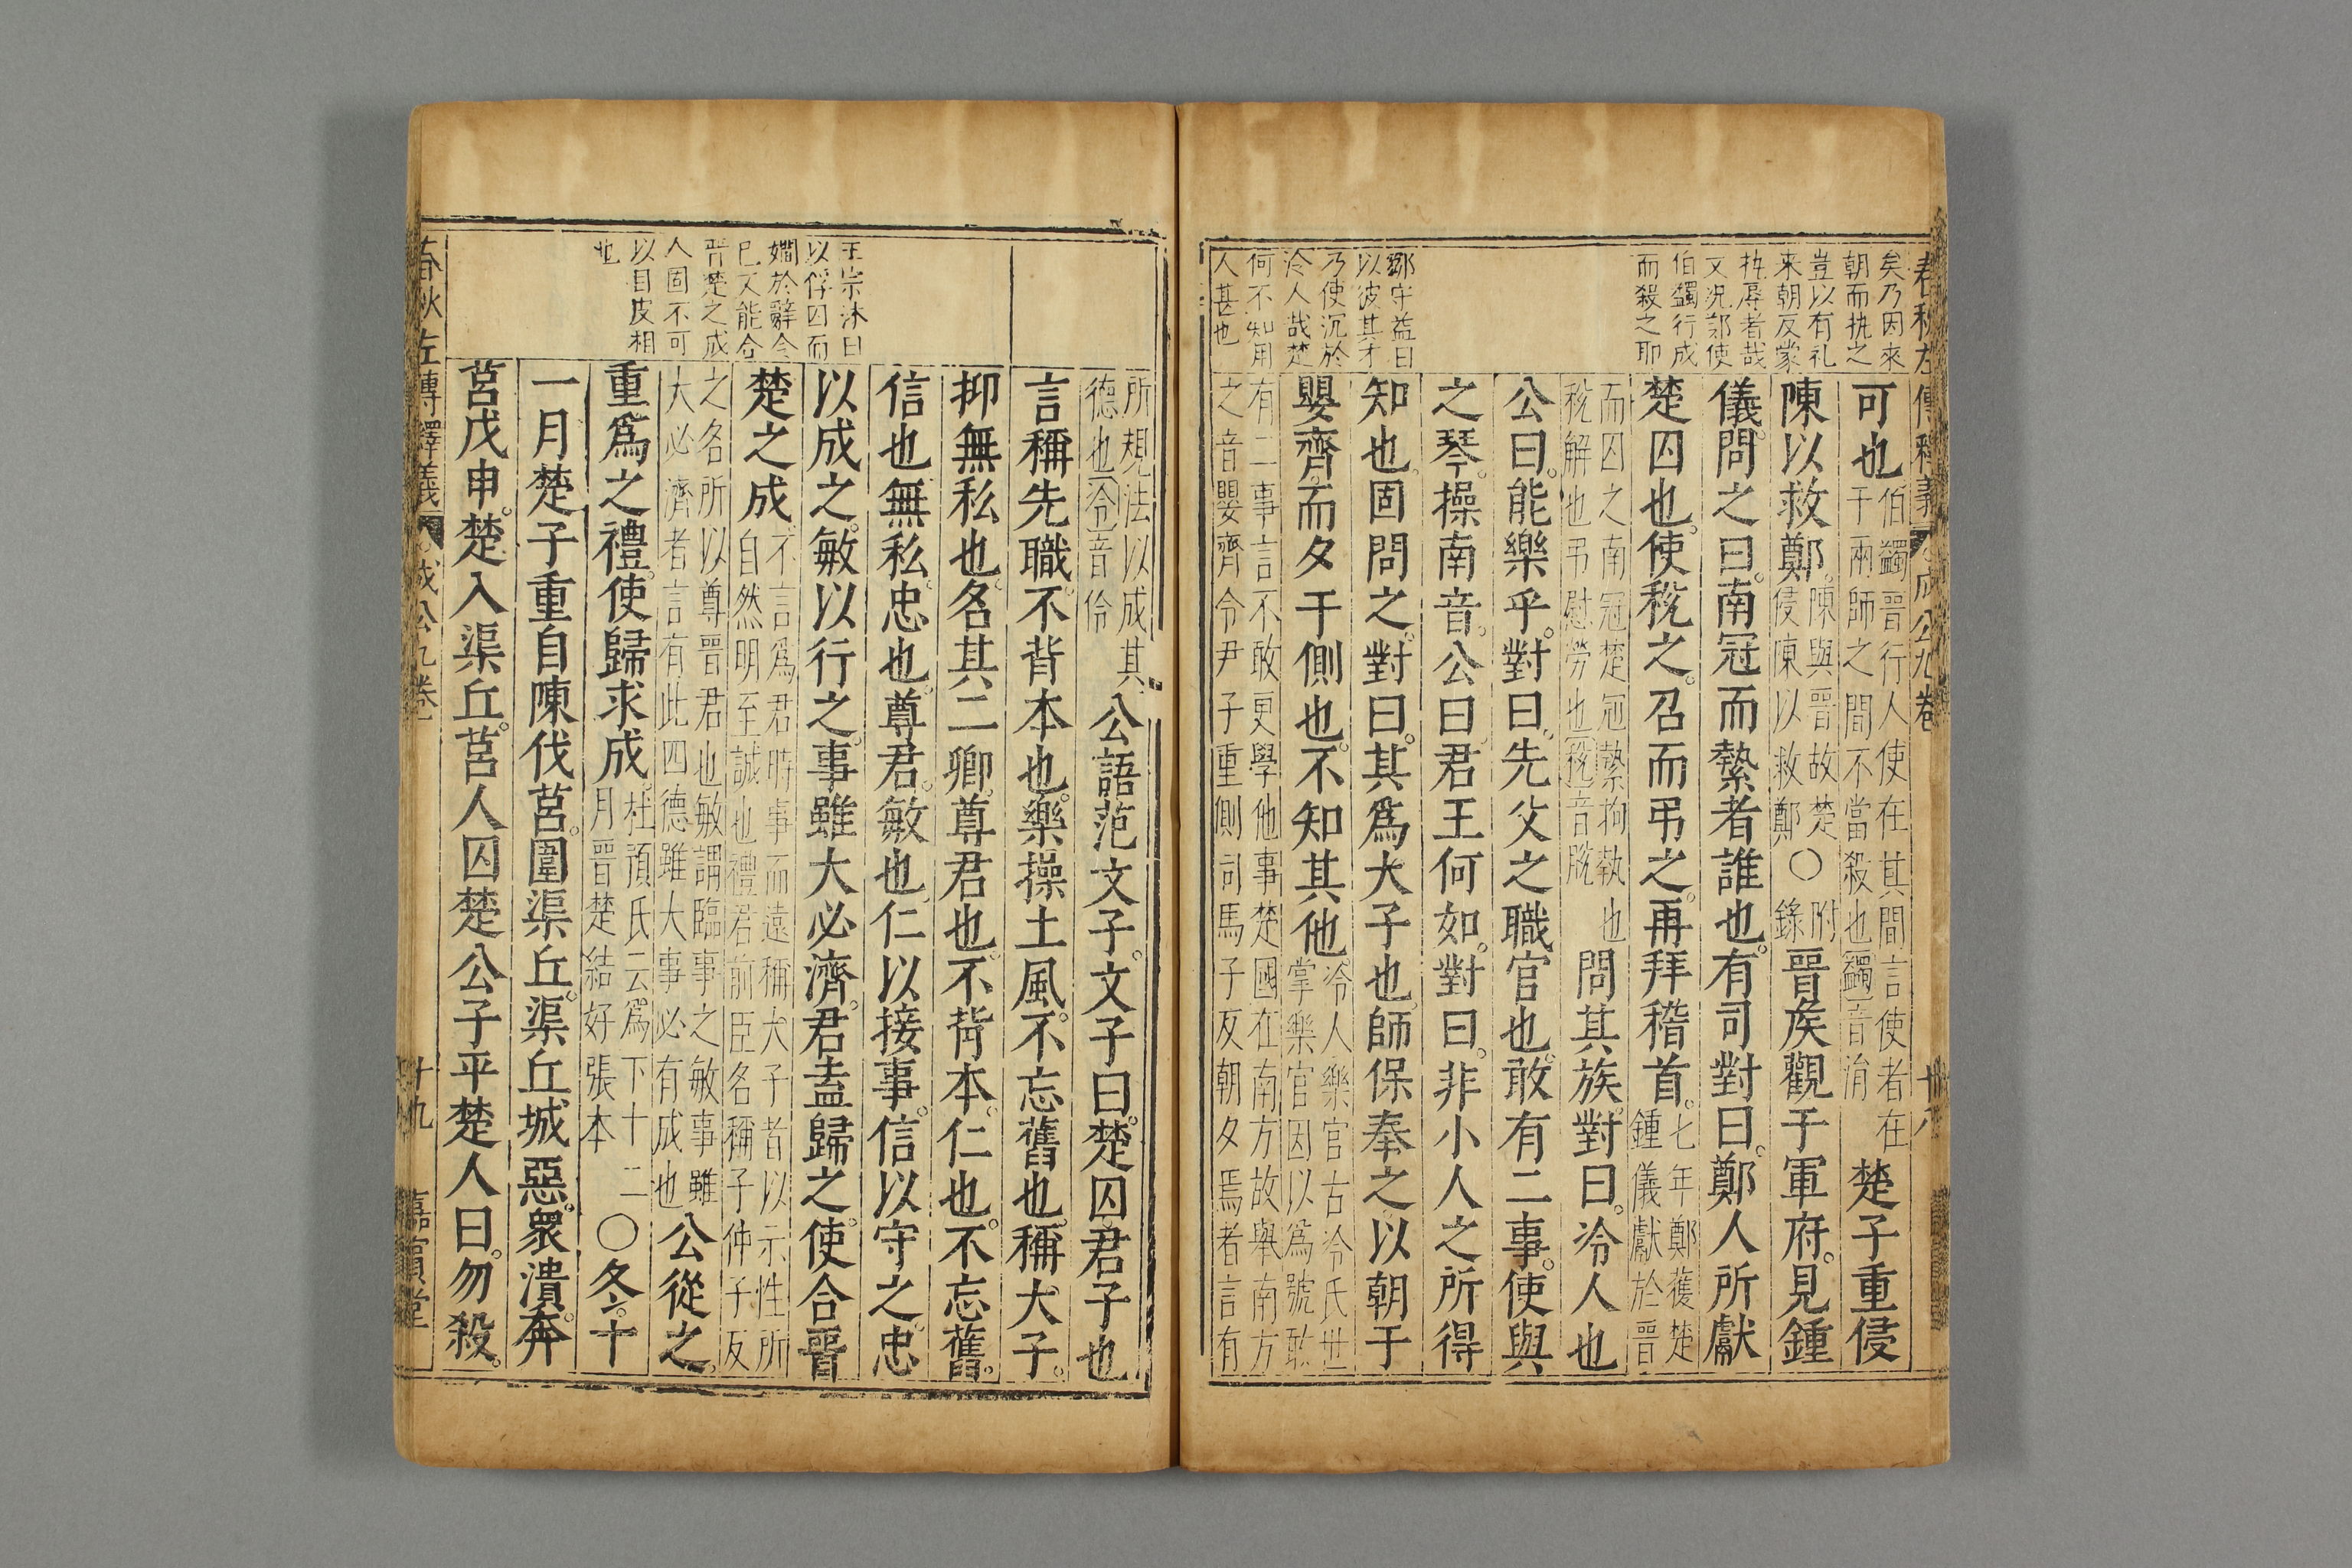 春秋左傳釋義 成公九卷 十八
矣乃因來
朝而执之
豈以有礼
来朝反蒙
执辱者哉
又況郊使
伯蠲行成
而殺之耶
鄒守益曰
以彼其才
乃使沉於
泠人哉楚
何不知用
人甚也
可也伯蠲晋行人使在其間言使者在于兩師之間不當殺也蠲音涓楚子重侵
陳以救鄭陳與晋故楚侵陳以救鄭〇附錄晉侯觀于軍府見鍾
儀問之曰南冠而縶者誰也有司對曰鄭人所獻
楚囚也使稅之召而弔之再拜稽首七年鄭獲楚鍾儀獻於晋
而囚之南冠楚冠縶拘執也稅解也弔慰勞也稅音脫問其族對曰泠人也
公曰能樂乎對曰先父之職官也敢有二事使與
之琴操南音公曰君王何如對曰非小人之所得
知也固問之對曰其爲大子也師保奉之以朝于
嬰齊而夕于側也不知其他泠人樂官古泠氏世掌樂官因以爲號敢
有二事言不敢更學他事楚國在南方故舉南方之音嬰齊令尹子重側司馬子反朝夕焉者言有
王宗沐曰
以俘囚而
嫺於辭令
已又能合
晋楚之成
人固不可
以目皮相
也
所規法以成其德也令音伶公語范文子文子曰楚囚君子也
言稱先職不背本也樂操土風不忘舊也稱大子
抑無私也名其二卿尊君也不背本仁也不忘舊
信也無私忠也尊君敏也仁以接事信以守之忠
以成之敏以行之事雖大必濟君盍歸之使合晉
楚之成不言爲君時事而遠稱大子者以示性所自然明至誠也禮君前臣名稱子仲子反
之名所以尊晋君也敏謂臨事之敏事雖大必濟者言有此四德雖大事必有成也公從之
重爲之禮使歸求成杜預氏云爲下十二月晋楚結好張本〇冬十
一月楚子重自陳伐莒圍渠丘渠丘城惡衆潰奔
莒戊申楚入渠丘莒人囚楚公子平楚人曰勿殺
春秋左傳釋義 成公九卷 十九